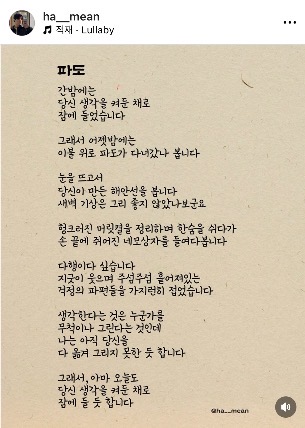 ha__mean
직재 · Lullaby
파도
간밤에는
당신 생각을 켜둔 채로
잠에 들었습니다
그래서 어젯밤에는
이불 위로 파도가 다녀갔나 봅니다
눈을 뜨고서
당신이 만든 해안선을 봅니다
새벽 기상은 그리 좋지 않았나보군요
헝크러진 머릿결을 정리하며 한숨을 쉬다가
손 끝에 쥐어진 네모상자를 들여다봅니다
다행이다 싶습니다
지긋이 웃으며 주섬주섬 흩어져있는
걱정의 파편들을 가지런히 접었습니다
생각한다는 것은 누군가를
무척이나 그린다는 것인데
나는 아직 당신을
다 옮겨 그리지 못한 듯 합니다
그래서, 아마 오늘도
당신 생각을 켜둔 채로
잠에 들 듯 합니다
@ha__mean